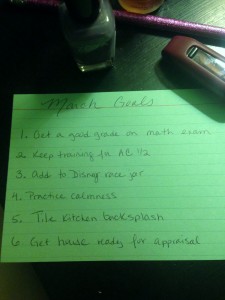 March Goals
1. Get a good grade on math exam
2. Keep training for AC 1/2
3. Add to Disney race jar
4. Practice calmness
5. Tile kitchen backsplash
6. Get house ready for appraisal